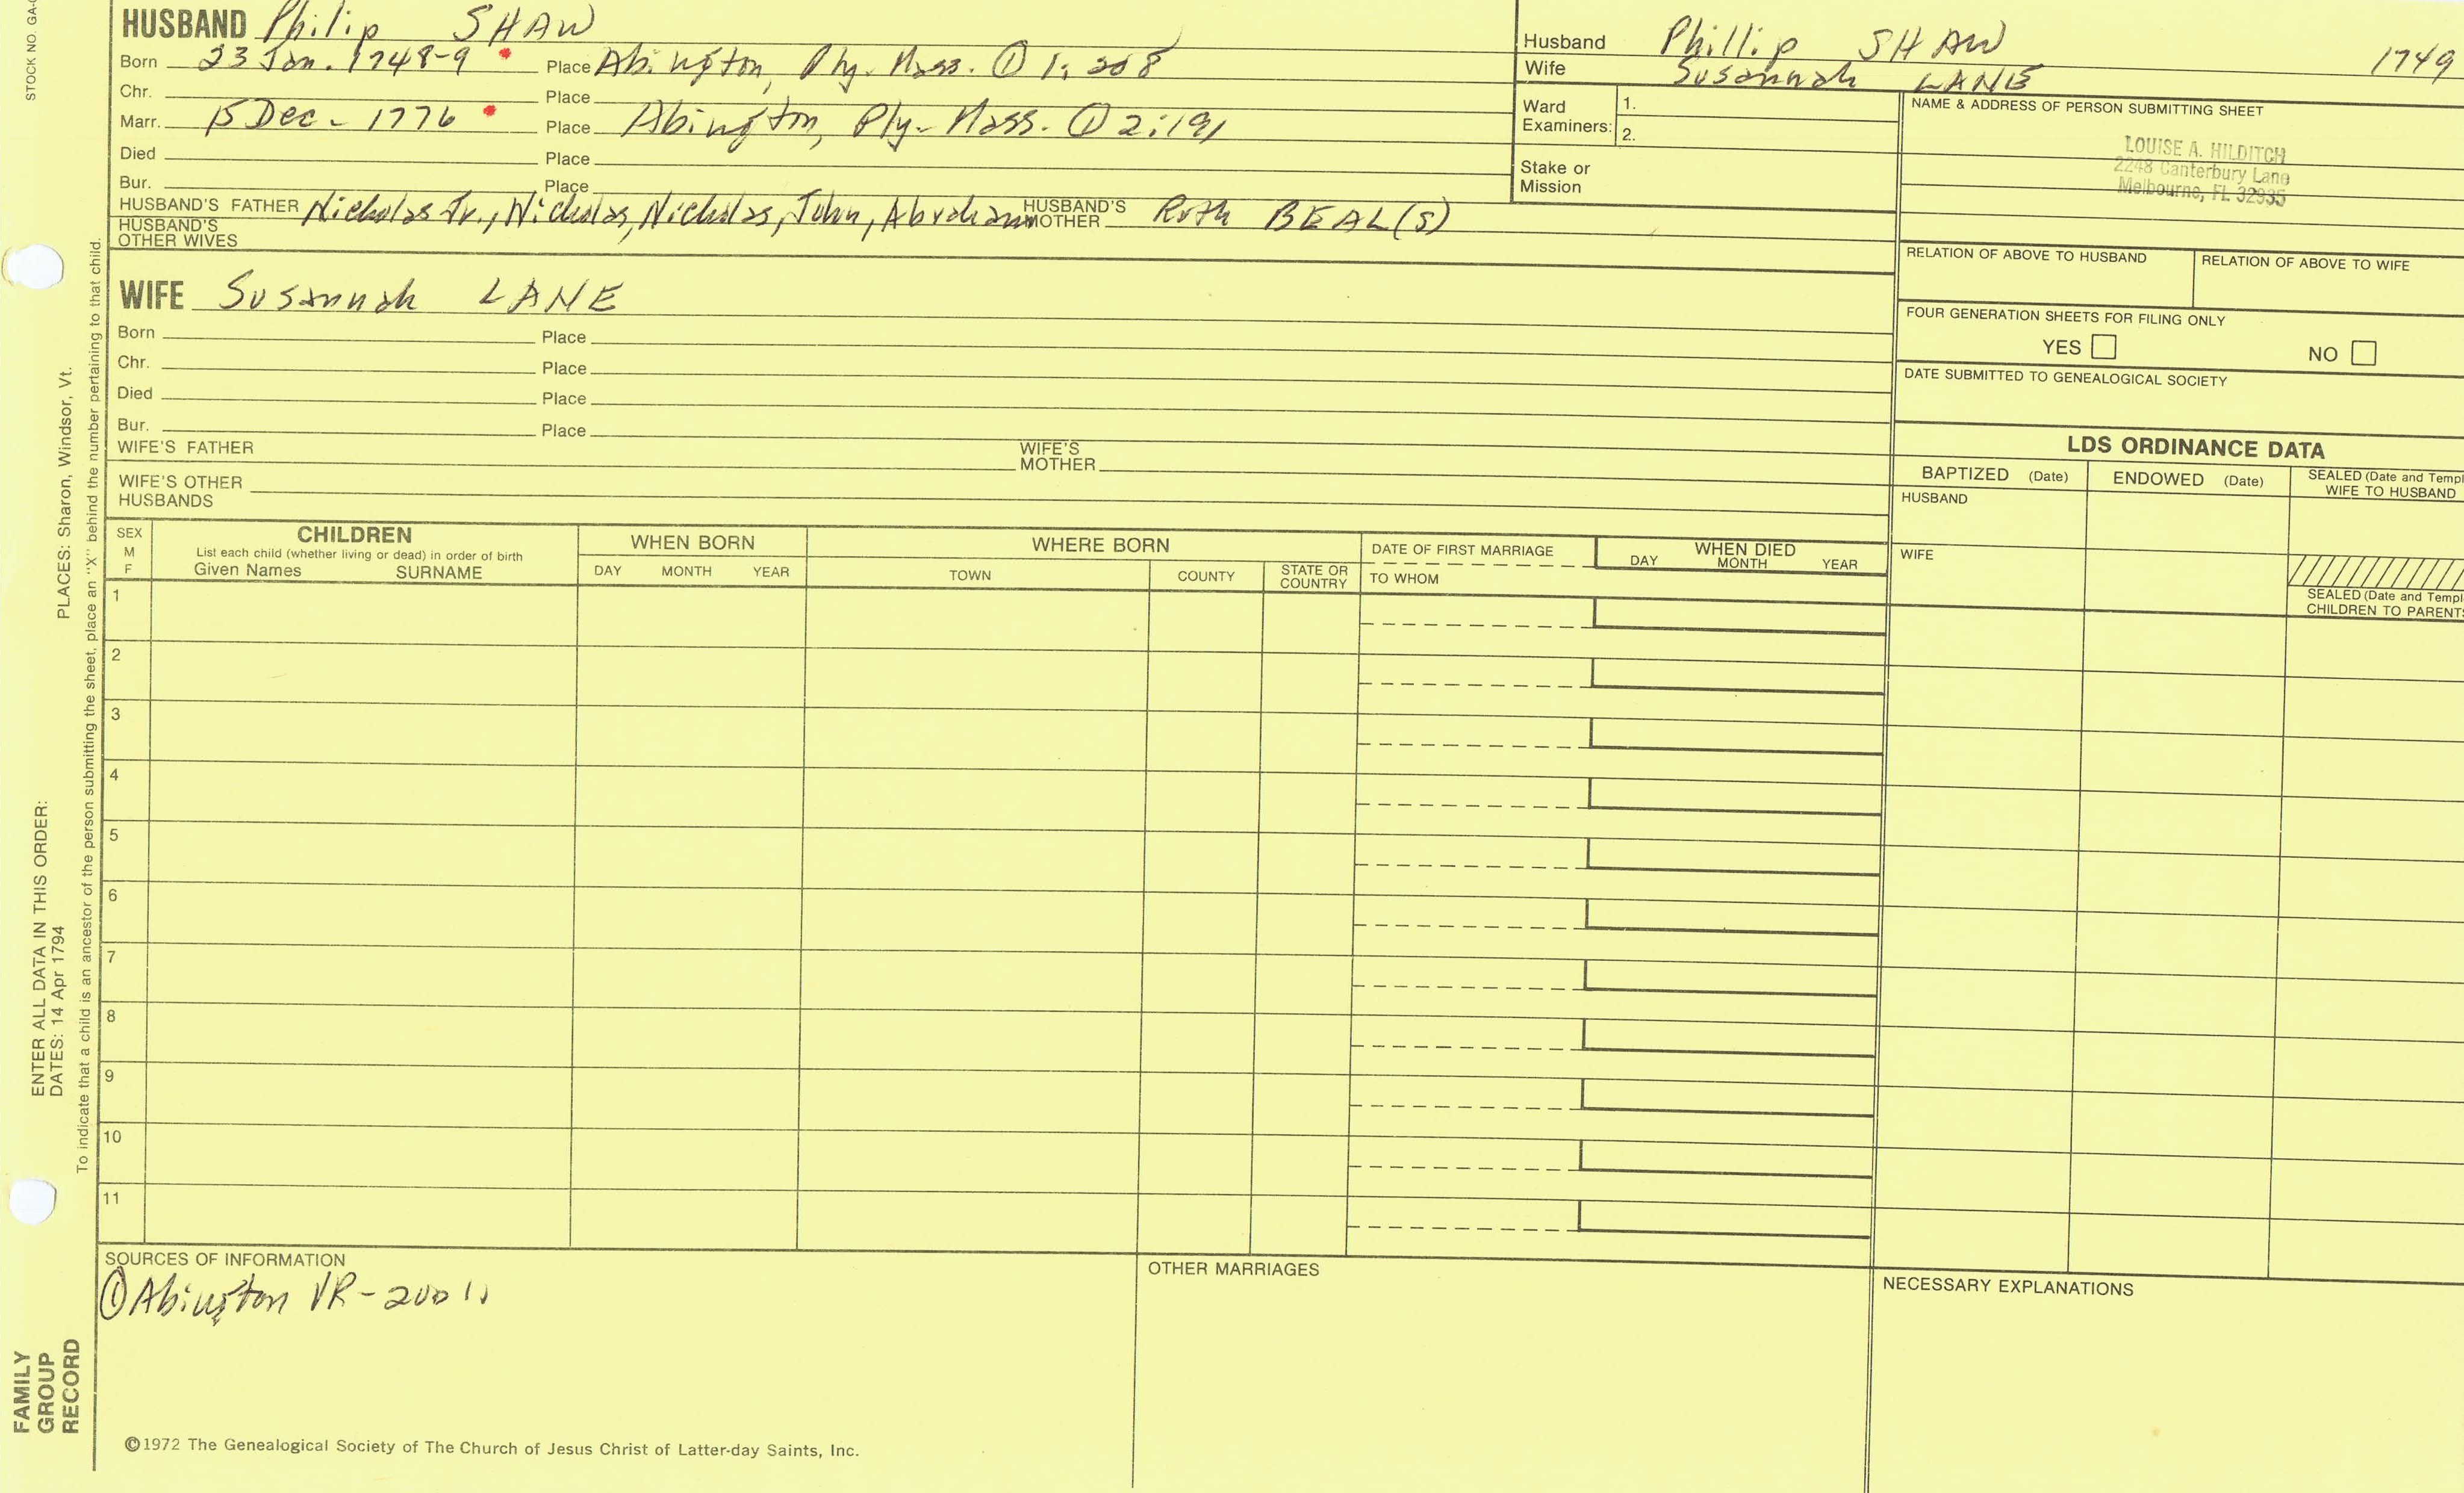 HUSBAND Philip SHAW
Born 23 Jan. 1748-9 Place Abington, Ply. Mass. ① 1:208
Chr. Place
Marr. 15 Dec - 1776 Place Abington, Ply- Mass. ① 2:191
Died Place
Bur. Place
HUSBAND'S FATHER Nicholas Jr., Nicholas, Nicholas, John, Abraham HUSBAND'S MOTHER Ruth BEAL(S)
HUSBAND'S OTHER WIVES
WIFE Susannah LANE
Born Place
Chr. Place
Died Place
Bur. Place
WIFE'S FATHER WIFE'S MOTHER
WIFE'S OTHER HUSBANDS
Husband Phillip SHAW 1749
Wife Susannah LANE
Ward Examiners: 1.
2.
Stake or Mission
NAME & ADDRESS OF PERSON SUBMITTING SHEET
LOUISE A. HILDITCH
2248 Canterbury Lane
Melbourne, FL 32935
RELATION OF ABOVE TO HUSBAND RELATION OF ABOVE TO WIFE
FOUR GENERATION SHEETS FOR FILING ONLY
YES NO
DATE SUBMITTED TO GENEALOGICAL SOCIETY
LDS ORDINANCE DATA
BAPTIZED (Date) ENDOWED (Date) SEALED (Date and Templ
WIFE TO HUSBAND
HUSBAND
WIFE
SEALED (Date and Templ
CHILDREN TO PARENTS
SEX
M
F
CHILDREN
List each child (whether living or dead) in order of birth
Given Names SURNAME
WHEN BORN
DAY MONTH YEAR
WHERE BORN
TOWN COUNTY STATE OR COUNTRY
DATE OF FIRST MARRIAGE
TO WHOM
WHEN DIED
DAY MONTH YEAR
1
2
3
4
5
6
7
8
9
10
11
SOURCES OF INFORMATION
① Abington VR-
OTHER MARRIAGES
NECESSARY EXPLANATIONS
©1972 The Genealogical Society of The Church of Jesus Christ of Latter-day Saints, Inc.
STOCK NO. GA-
PLACES: Sharon, Windsor, Vt.
ENTER ALL DATA IN THIS ORDER:
DATES: 14 Apr 1794
To indicate that a child is an ancestor of the person submitting the sheet, place an "X" behind the number pertaining to that child.
FAMILY
GROUP
RECORD